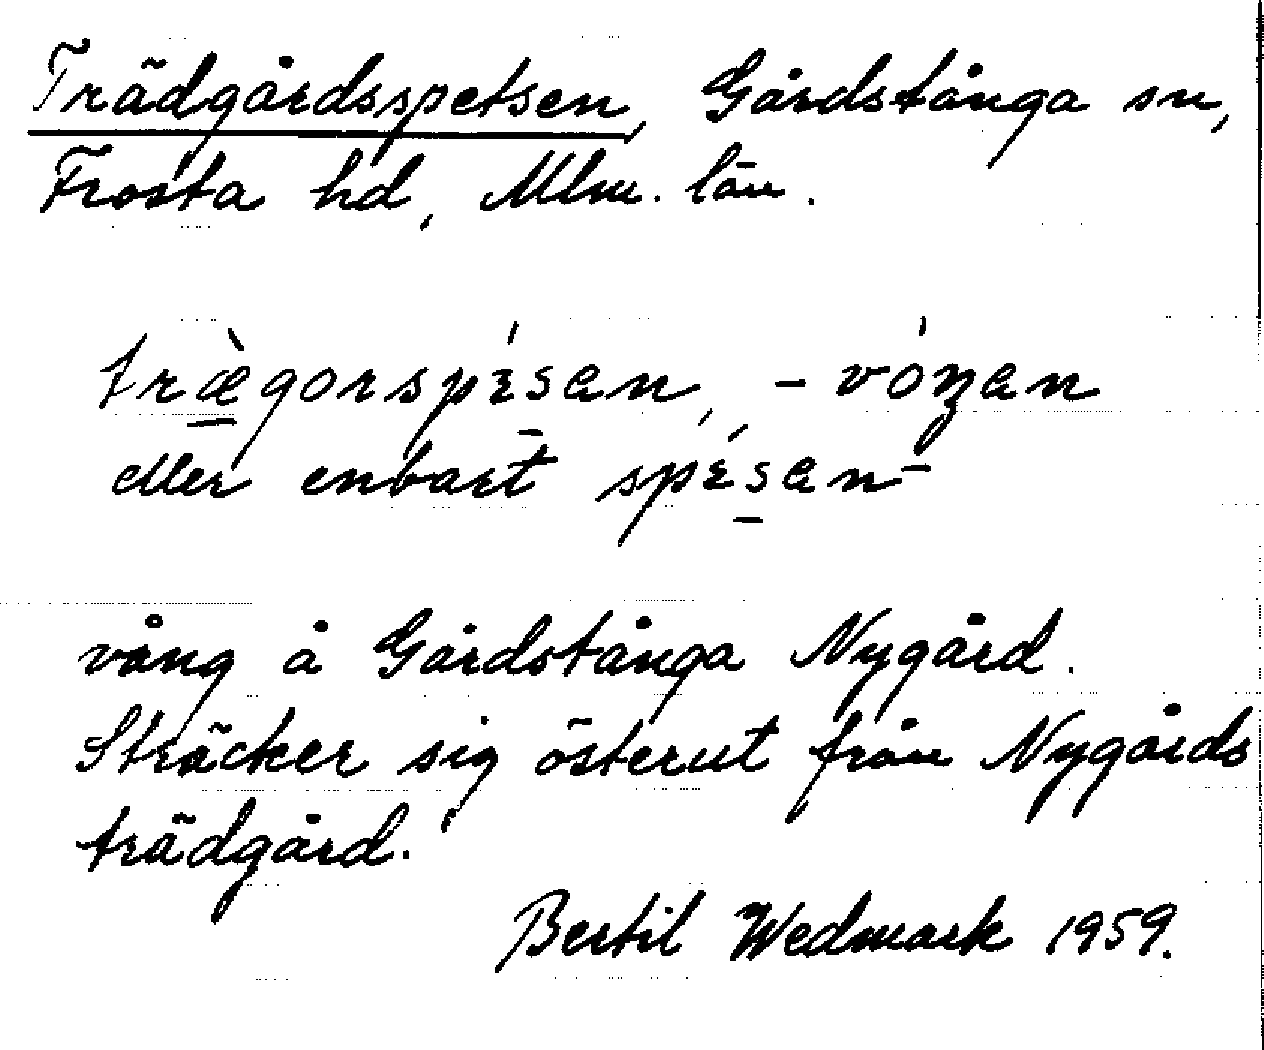 Trädgårdsspetsen, Gårdstånga sn,
Frosta hd, Mlm. län.
træ̀gorspɛ́sen, -vóŋen
eller enbart spɛ́sen-
vång å Gårdstånga Nygård.
Sträcker sig österut från Nygårds
trädgård.
Bertil Wedmark 1959.